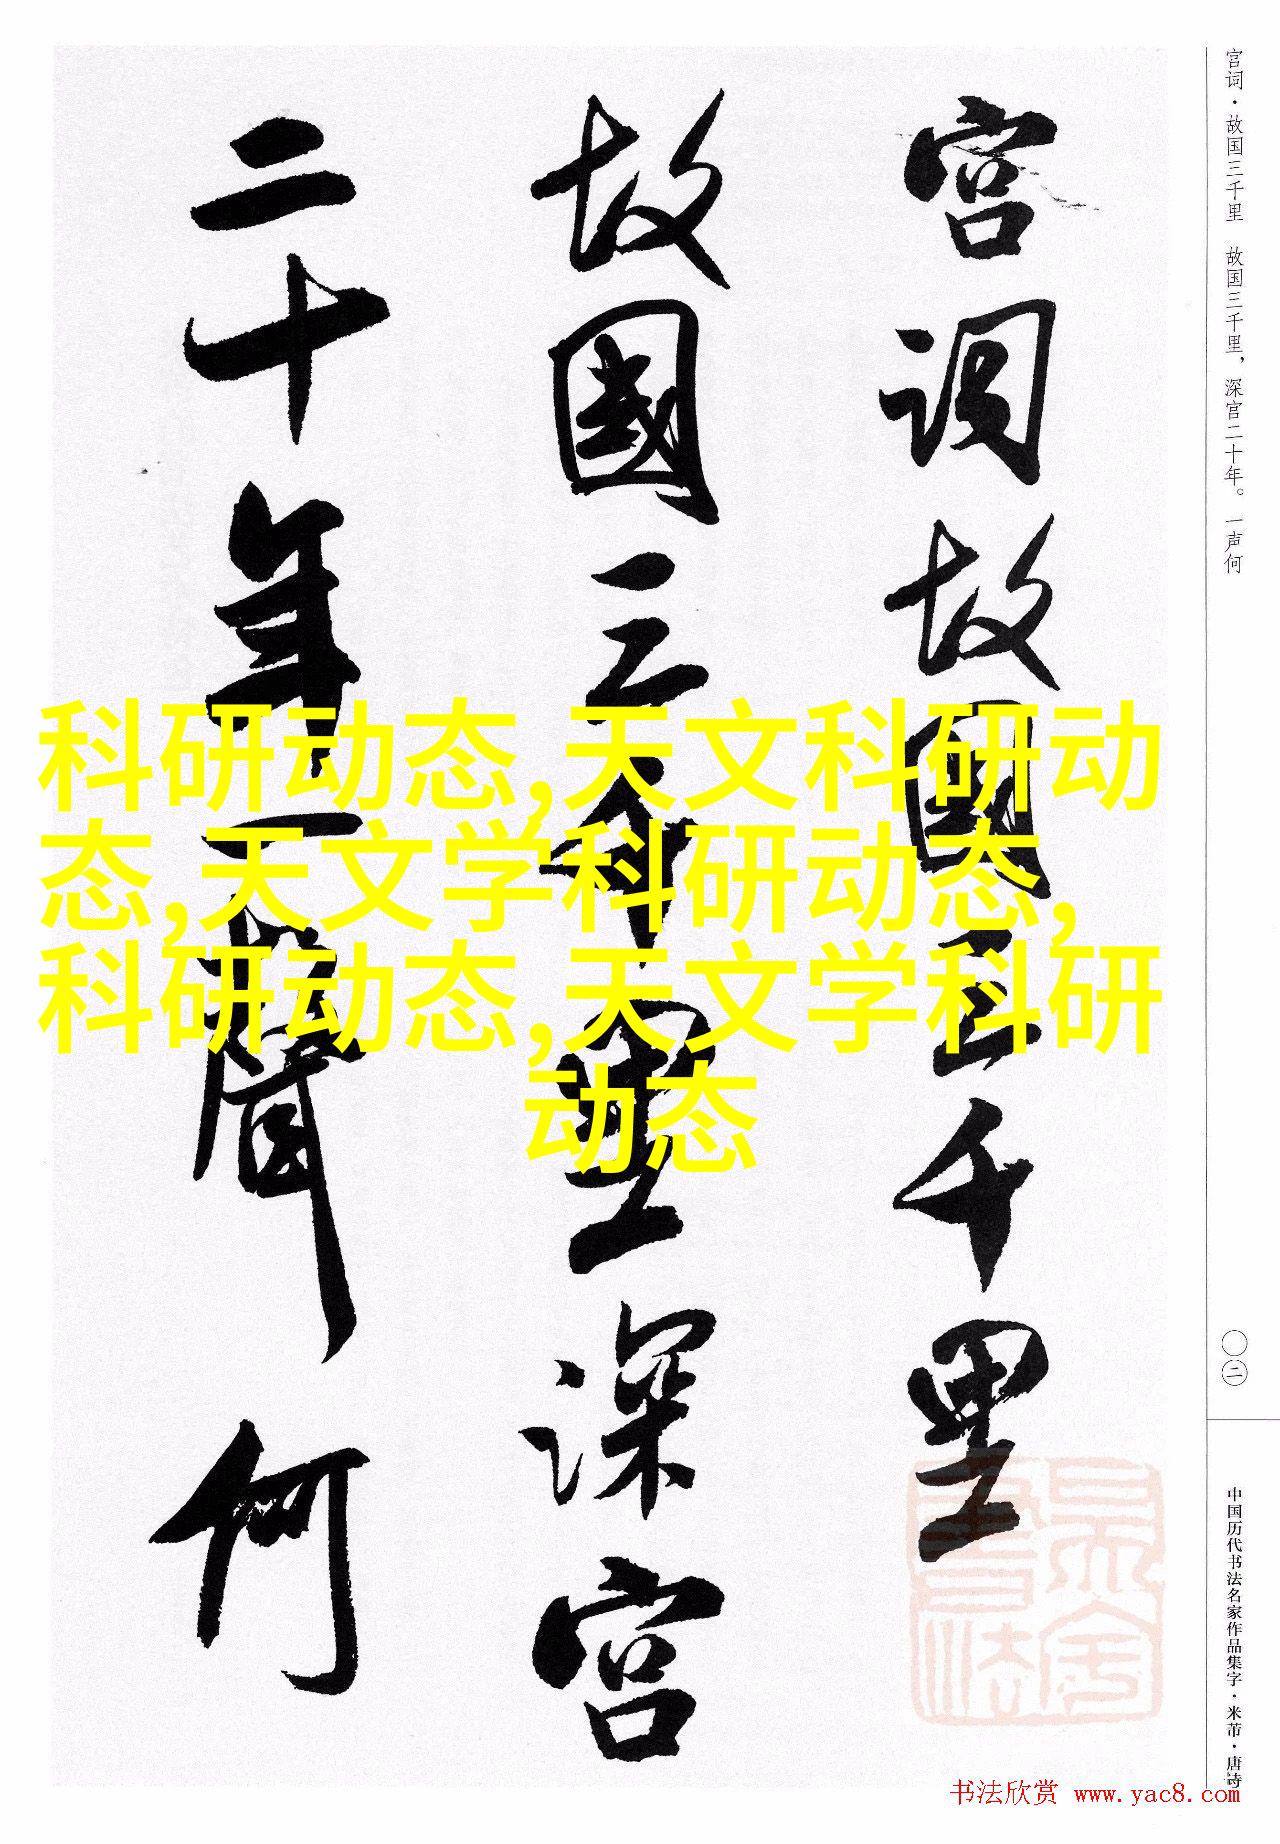 宫词故國三千里
故國三千里深宫
二十年一聲何
宫词·故国三千里 故国三千里，深宫二十年。一声何
〇二
中国历代书法名家作品集字·米芾·唐诗
科研动态,天文科研动
态,天文学科研动态,
科研动态,天文学科研
动态
书法欣赏 www.yac8.com